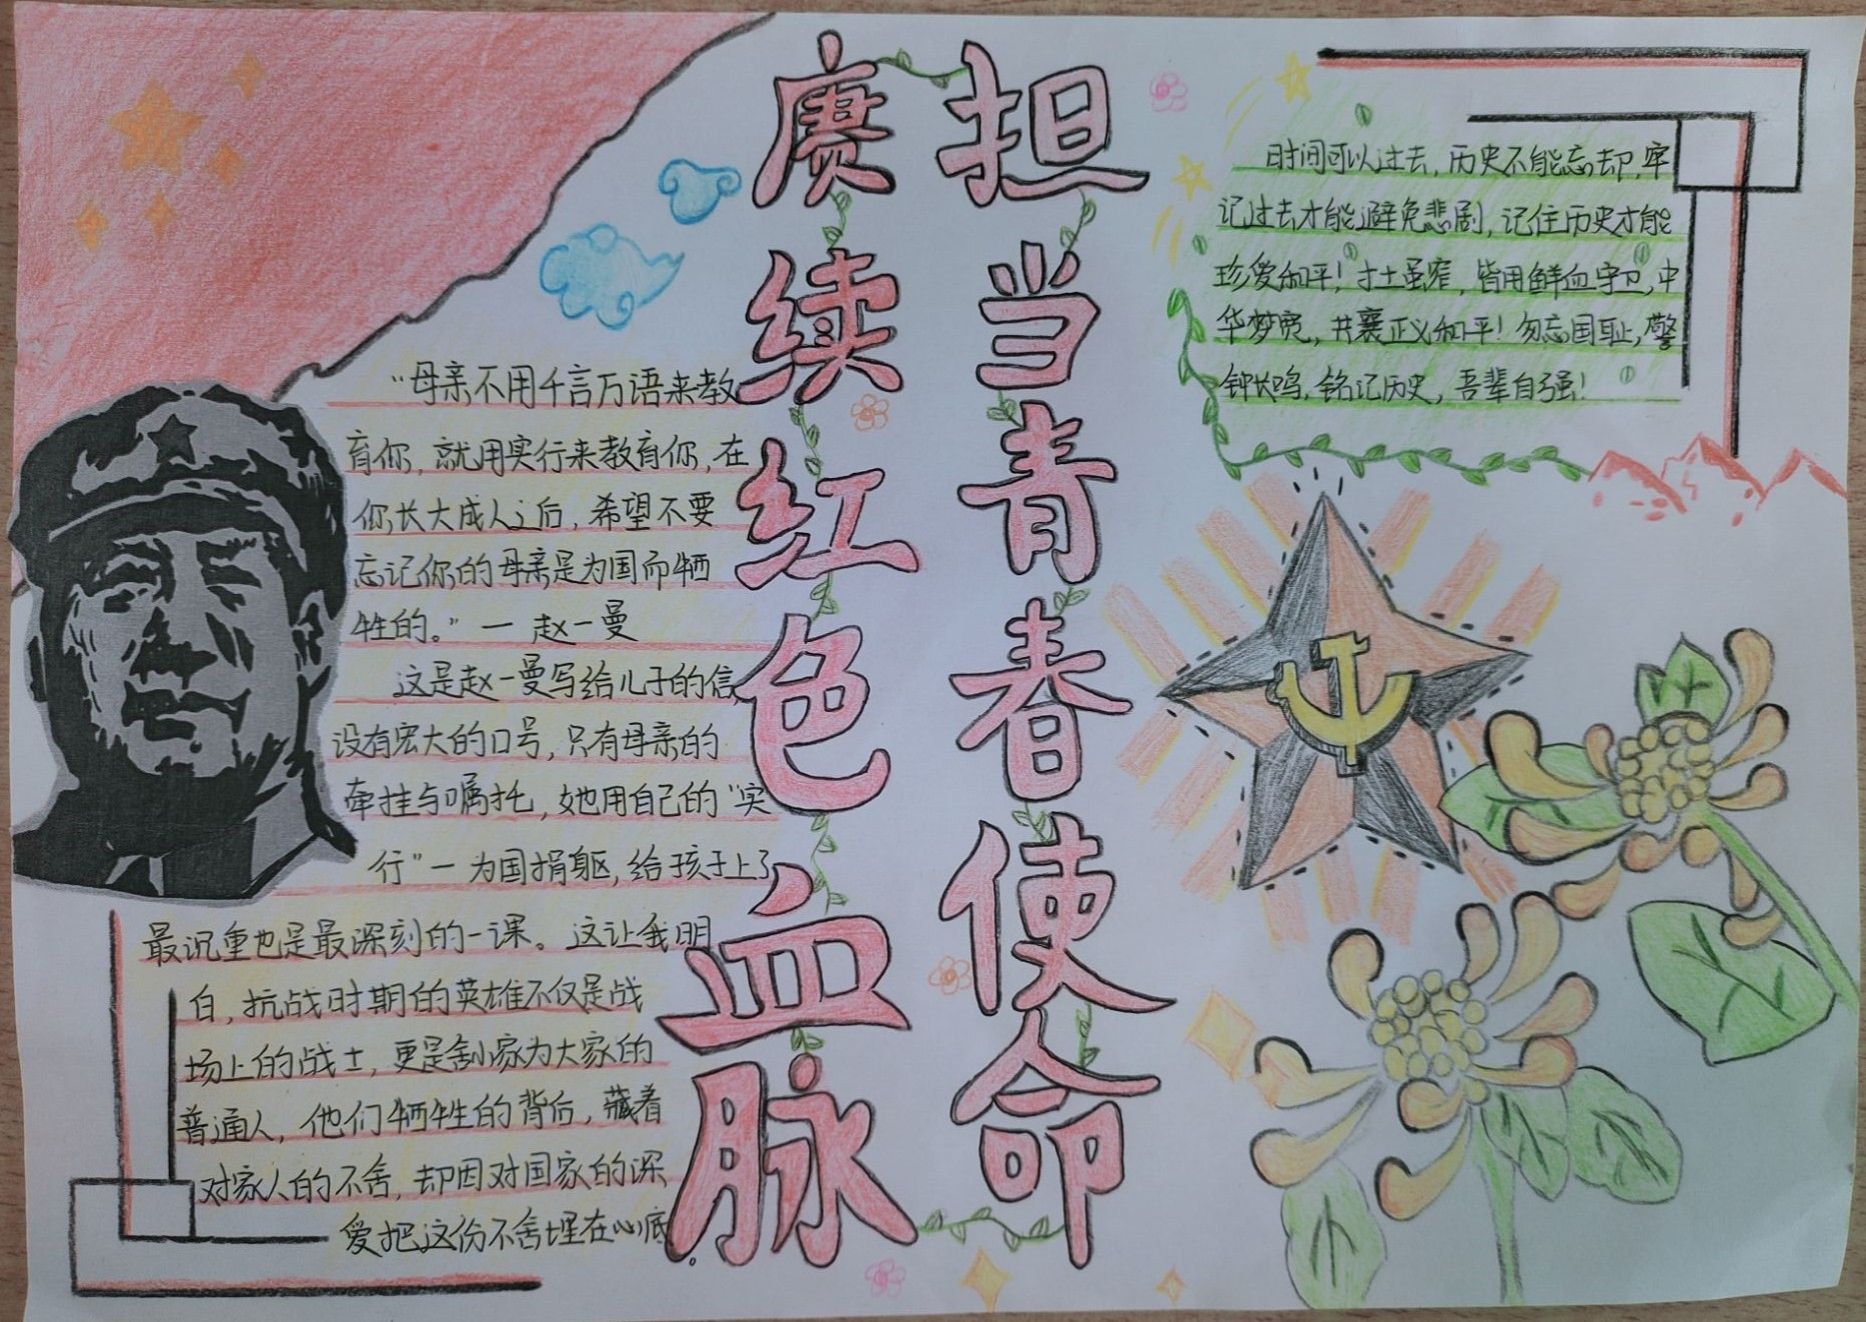 赓续红色血脉
担当青春使命
"母亲不用千言万语来教
育你,就用实行来教育你,在
你长大成人之后,希望不要
忘记你的母亲是为国而牺
牲的。" — 赵一曼
这是赵一曼写给儿子的信,
没有宏大的口号,只有母亲的
牵挂与嘱托,她用自己的"实
行"—为国捐躯,给孩子上了
最沉重也是最深刻的一课。这让我明
白,抗战时期的英雄不仅是战
场上的战士,更是舍小家为大家的
普通人,他们牺牲的背后,藏着
对家人的不舍,却因对国家的深
爱把这份不舍埋在心底。
时间可以过去,历史不能忘却,牢
记过去才能避免悲剧,记住历史才能
珍爱和平!寸土虽窄,皆用鲜血守卫,中
华梦宽,共襄正义和平!勿忘国耻,警
钟长鸣,铭记历史,吾辈自强!